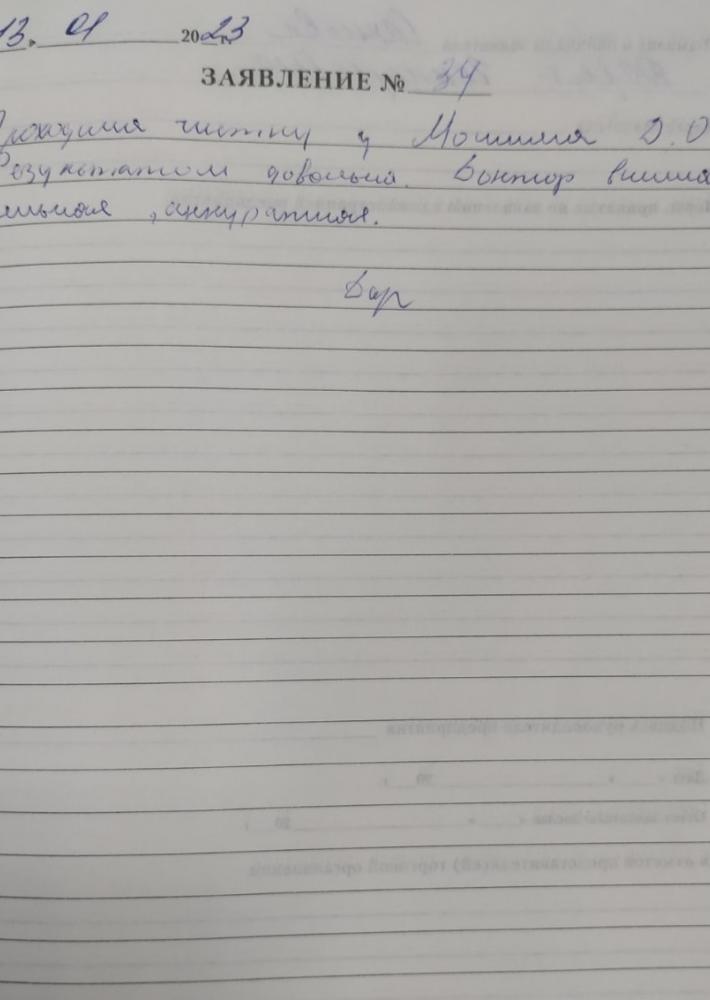 13. 01 2023
ЗАЯВЛЕНИЕ № 34
Проходила чистку у Д.О
Результатом довольна. Доктор внима
тельная, аккуратная.